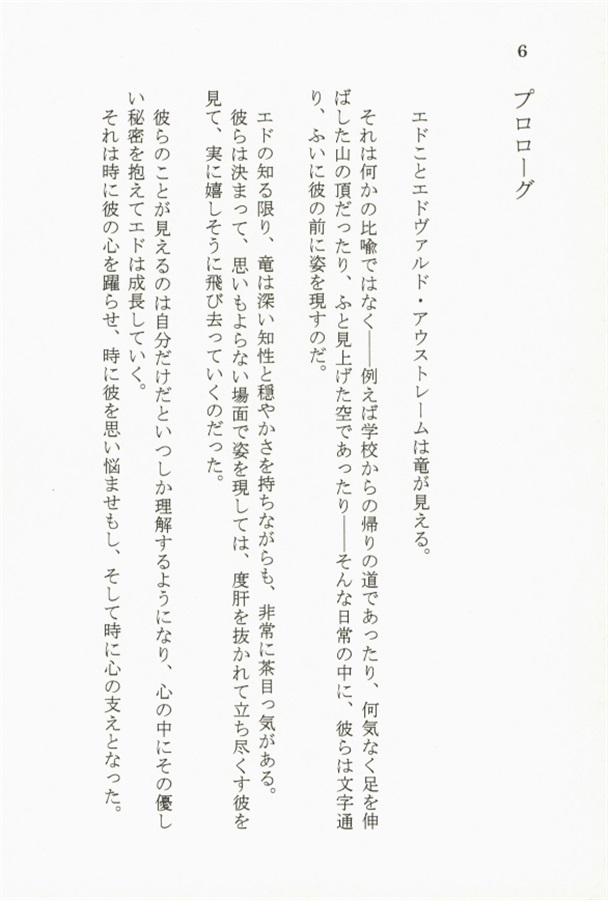 6
プロローグ
エドことエドヴァルド・アウストレームは竜が見える。
それは何かの比喩ではなく――例えば学校からの帰りの道であったり、何気なく足を伸
ばした山の頂だったり、ふと見上げた空であったり――そんな日常の中に、彼らは文字通
り、ふいに彼の前に姿を現すのだ。
エドの知る限り、竜は深い知性と穏やかさを持ちながらも、非常に茶目っ気がある。
彼らは決まって、思いもよらない場面で姿を現しては、度肝を抜かれて立ち尽くす彼を
見て、実に嬉しそうに飛び去っていくのだった。
彼らのことが見えるのは自分だけだといつしか理解するようになり、心の中にその優し
い秘密を抱えてエドは成長していく。
それは時に彼の心を躍らせ、時に彼を思い悩ませもし、そして時に心の支えとなった。